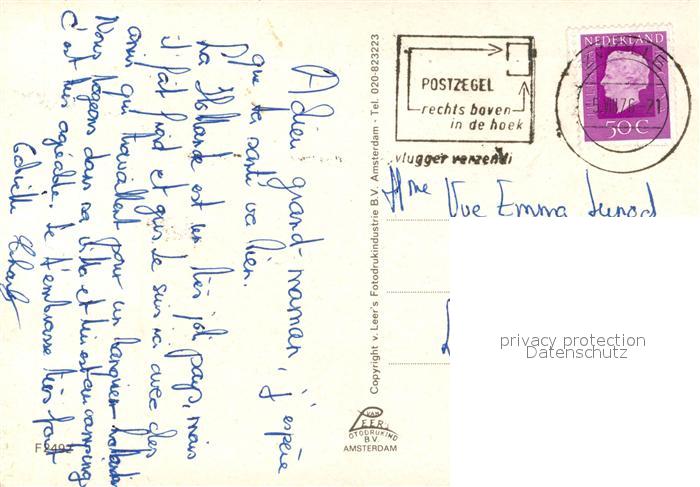 Adieu grand-maman, j'espère
que ta santé va bien.
La Hollande est un très joli pays, mais
il fait froid et gris. Je suis là avec des
amis qui travaillent pour un banquier hollandais
Nous logeons dans sa villa et lui est au camping
C'est très agréable. Je t'embrasse très fort
Edith
F2492
Copyright v. Leer's Fotodrukindustrie B.V. Amsterdam - Tel. 020-823223
VAN
LEER
FOTODRUKIND
B.V.
AMSTERDAM
POSTZEGEL
rechts boven
in de hoek
vlugger verzendi
NEDERLAND
50C
-5 VIII 76-21
Mme Vve Emma Junod
privacy protection
Datenschutz